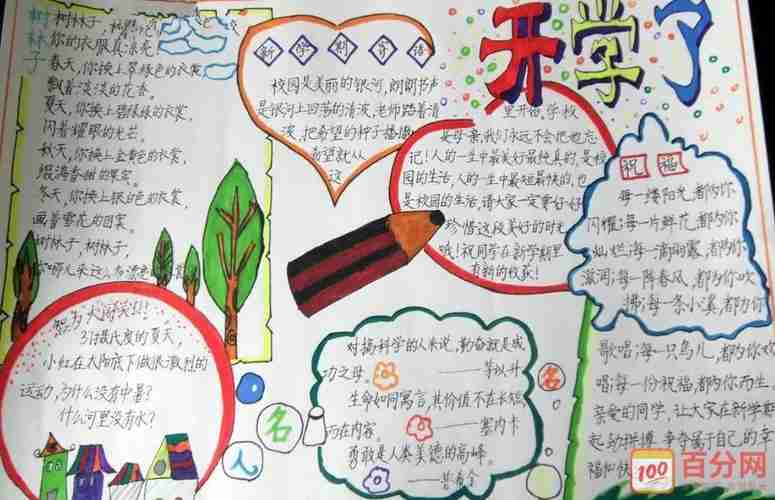 开学了
树林子
树林子,树林子,
你的衣服真漂亮
春天,你换上翠绿色的衣裳,
飘着淡淡的花香。
夏天,你换上碧绿的衣裳,
闪着耀眼的光芒。
秋天,你换上金黄色的衣裳,
冬天,你换上银白色的衣裳,
画着雪花的图案。
树林子,树林子,
新学期寄语
校园是美丽的银河,朗朗书声
是银河上回荡的清波,老师踏着清
波,把希望的种子播撒
希望就从
这
里开始,学校
是母亲,我们永远不会把她忘
记!人的一生中最美好最纯真的,是校
园的生活,人的一生中最短最快的,也
是校园的生活,请大家一定要好好
珍惜这段美好的时光
哦!祝同学在新学期里
有新的收获!
祝福
每一缕阳光,都为你
闪耀;每一片鲜花,都为你
灿烂;每一滴雨露,都为你
滋润;每一阵春风,都为你吹
拂;每一条小溪,都为你
歌唱;每一只鸟儿,都为你欢
唱;每一份祝福,都为你而生
亲爱的同学,让大家在新学期
一起努力拼搏,争夺属于自己的幸
福
38摄氏度的夏天,
小红在太阳底下做很激烈的
运动,为什么没有中暑?
什么河里没有水?
名人名
对搞科学的人来说,勤奋就是成
功之母。
——茅以升
生命如同寓言,其价值不在长短,
而在内容。
——塞内卡
勇敢是人类美德的高峰。
——普希金
100
百分网